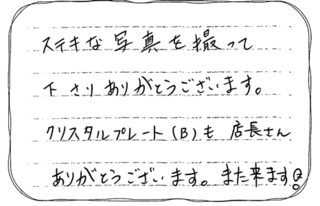 ステキな写真を撮って
下さりありがとうございます。
クリスタルプレート(B)も店長さん
ありがとうございます。また来ます